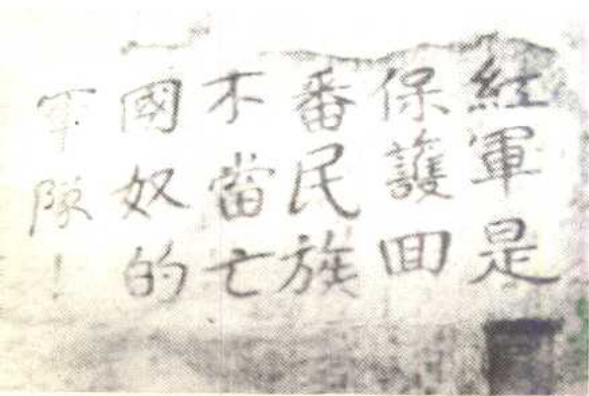 紅軍是
保護回
番民族
不當亡
國奴的
軍隊！